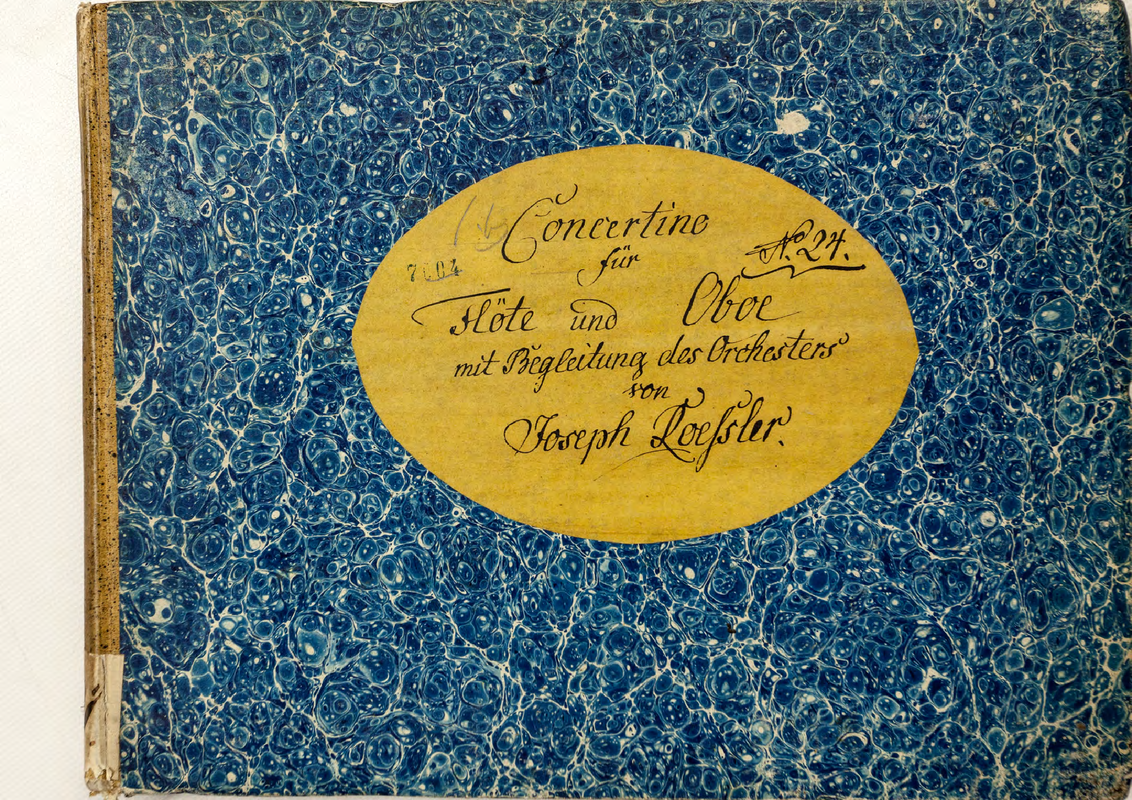 Concertino
No. 24.
für
Flöte und Oboe
mit Begleitung des Orchesters
von
Joseph Roessler.